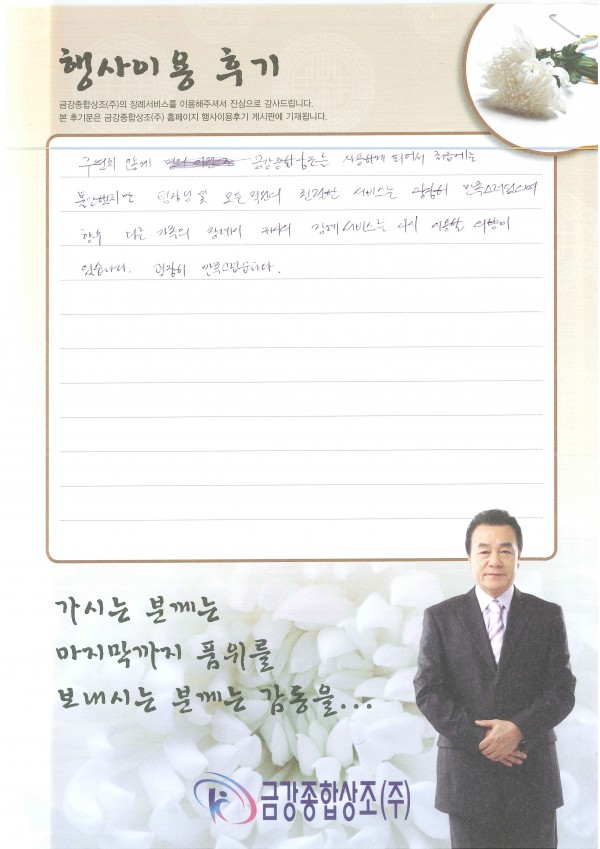 행사이용 후기
금강종합상조(주)의 장례서비스를 이용해주셔서 진심으로 감사드립니다.
본 후기문은 금강종합상조(주) 홈페이지 행사이용후기 게시판에 기재됩니다.
우연치 않게 금강종합상조를 사용하게 되어서 처음에는
불안했지만 팀장님 및 모든 직원의 친절한 서비스는 굉장히 만족스러웠으며
향후 다른 가족의 장례시 귀사의 장례서비스는 다시 이용할 의향이
있습니다. 굉장히 만족스럽습니다.
가시는 분께는
마지막까지 품위를
보내시는 분께는 감동을...
금강종합상조(주)